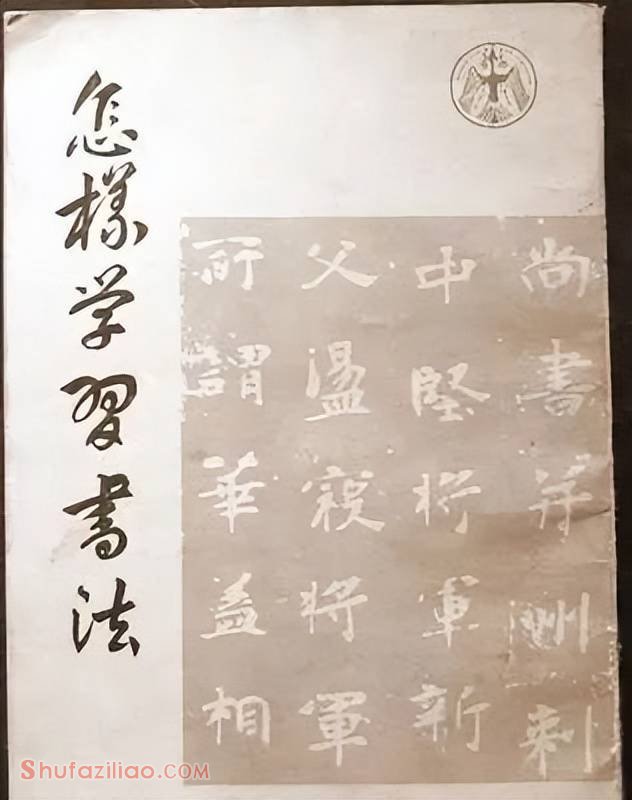 怎样学习书法
尚書并州刺
中堅将軍新
父溫寇將軍
所謂華盖相
Shufaziliao.COM